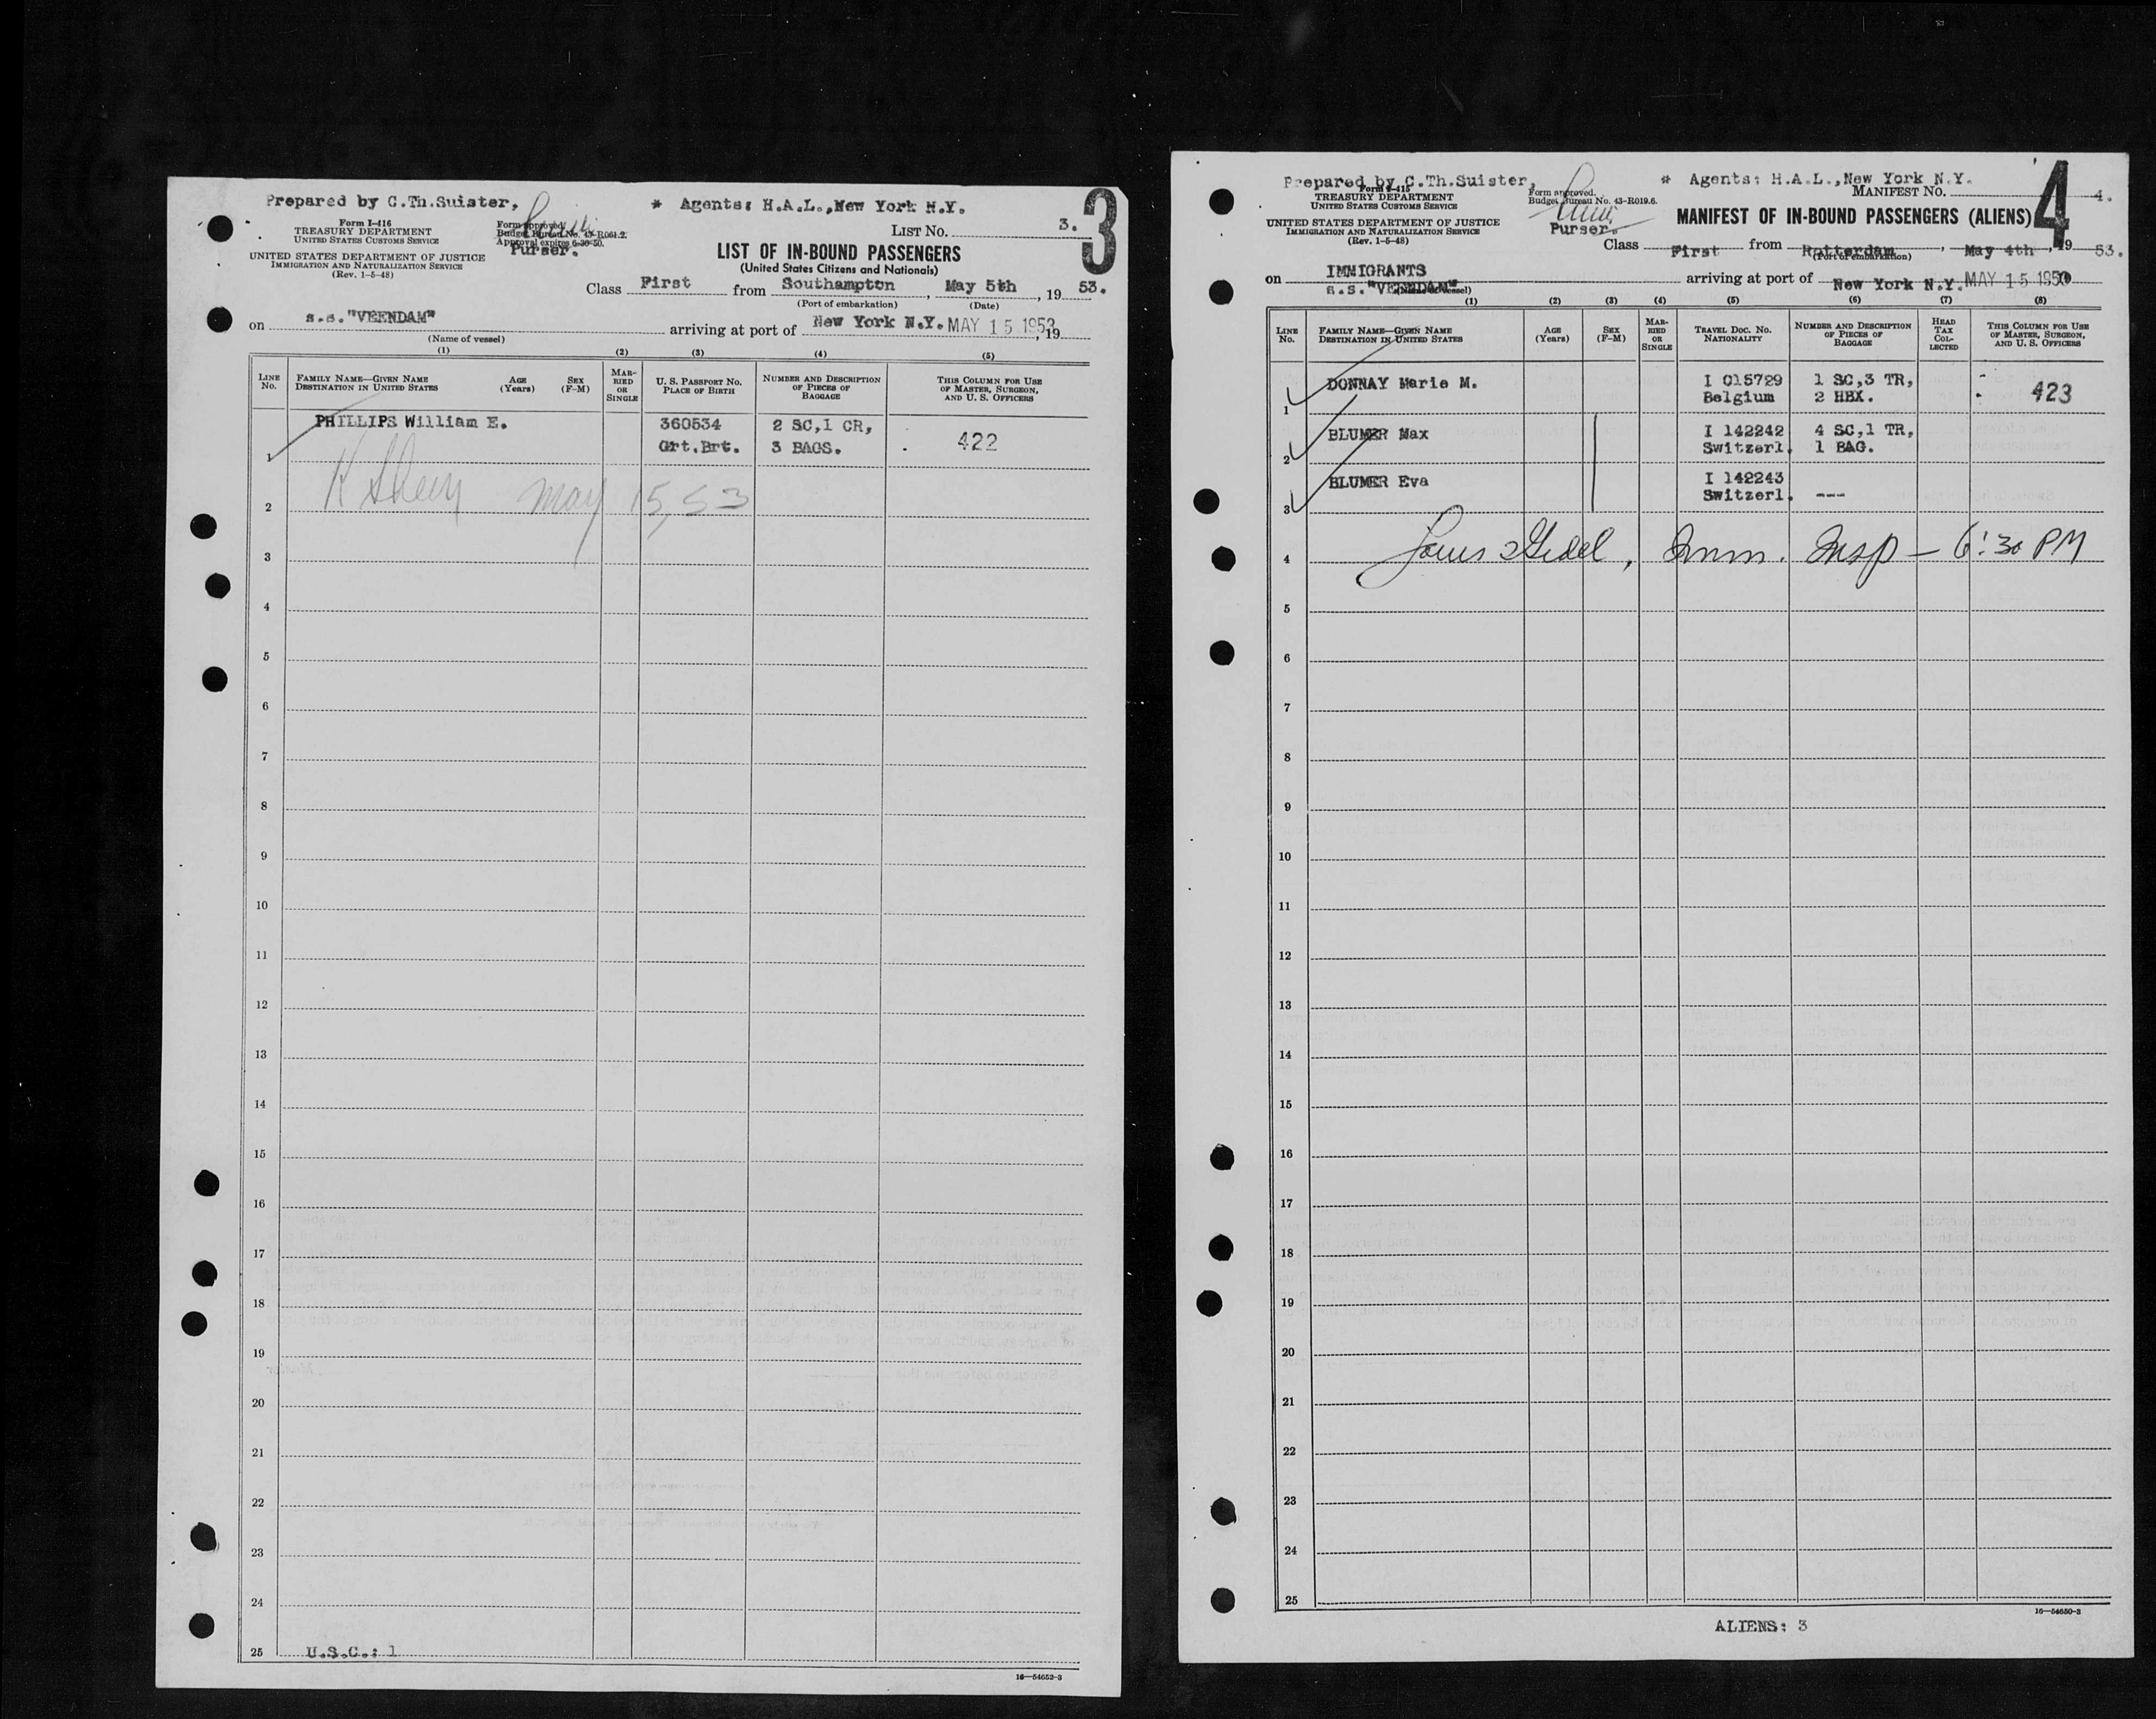 Prepared by C.Th.Suister,
* Agents: H.A.L.,New York N.Y.
3
Form I-416
TREASURY DEPARTMENT
UNITED STATES CUSTOMS SERVICE
UNITED STATES DEPARTMENT OF JUSTICE
IMMIGRATION AND NATURALIZATION SERVICE
(Rev. 1-5-48)
Form approved.
Budget Bureau No. 43-R061.2.
Approval expires 6-30-50.
Purser.
LIST NO. 3.
LIST OF IN-BOUND PASSENGERS
(United States Citizens and Nationals)
Class First from Southampton, May 5th, 19 53.
(Port of embarkation) (Date)
on s.s."VEENDAM" arriving at port of New York N.Y. MAY 15 1953, 19
(Name of vessel)
(1) (2) (3) (4) (5)
LINE No. FAMILY NAME—GIVEN NAME DESTINATION IN UNITED STATES AGE (Years) SEX (F-M) MARRIED OR SINGLE U. S. PASSPORT NO. PLACE OF BIRTH NUMBER AND DESCRIPTION OF PIECES OF BAGGAGE THIS COLUMN FOR USE OF MASTER, SURGEON, AND U. S. OFFICERS
PHILLIPS William E. 360534 2 SC,1 CR,
1 Grt.Brt. 3 BAGS. 422
2 May 15, 53
3
4
5
6
7
8
9
10
11
12
13
14
15
16
17
18
19
20
21
22
23
24
25 U.S.C.: 1
16—54652-3
Prepared by C.Th.Suister,
* Agents: H.A.L.,New York N.Y.
4
Form I-415
TREASURY DEPARTMENT
UNITED STATES CUSTOMS SERVICE
UNITED STATES DEPARTMENT OF JUSTICE
IMMIGRATION AND NATURALIZATION SERVICE
(Rev. 1-5-48)
Form approved.
Budget Bureau No. 43-R019.6.
Purser.
MANIFEST NO. 4.
MANIFEST OF IN-BOUND PASSENGERS (ALIENS)
Class First from Rotterdam, May 4th, 19 53.
(Port of embarkation)
IMMIGRANTS
on s.s."VEENDAM" arriving at port of New York N.Y. MAY 15 195
(Name of vessel)
(1) (2) (3) (4) (5) (6) (7) (8)
LINE No. FAMILY NAME—GIVEN NAME DESTINATION IN UNITED STATES AGE (Years) SEX (F-M) MARRIED OR SINGLE TRAVEL DOC. NO. NATIONALITY NUMBER AND DESCRIPTION OF PIECES OF BAGGAGE HEAD TAX COLLECTED THIS COLUMN FOR USE OF MASTER, SURGEON, AND U. S. OFFICERS
DONNAY Marie M. I 015729 1 SC,3 TR,
1 Belgium 2 HBX. 423
BLUMER Max I 142242 4 SC,1 TR,
2 Switzerl. 1 BAG.
BLUMER Eva I 142243
3 Switzerl. ---
4 Louis Imm. Insp — 6:30 PM
5
6
7
8
9
10
11
12
13
14
15
16
17
18
19
20
21
22
23
24
25
16—54650-3
ALIENS: 3